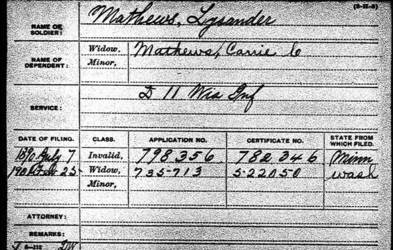 (3-II-3)
NAME OF SOLDIER: Mathews, Lysander
NAME OF DEPENDENT: Widow, Mathews, Carrie C
Minor,
SERVICE: D 11 Wis Inf
DATE OF FILING. CLASS. APPLICATION NO. CERTIFICATE NO. STATE FROM WHICH FILED.
1890 July 7 Invalid, 798356 782046 Minn
25 Widow, 735-713 522050 Wash
Minor,
ATTORNEY:
REMARKS: